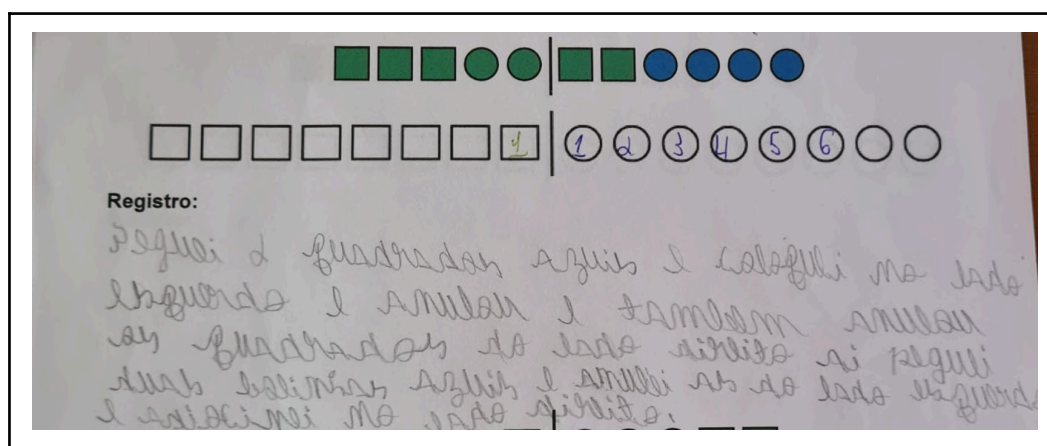 1 1 2 3 4 5 6
Registro:
Peguei 2 quadrados azuis e coloquei no lado
esquerdo e anulou e também anulou
os quadrados do lado direito ai peguei
duas bolinhas azuis e anulei as do lado esquerdo
e adicionei no lado direito.